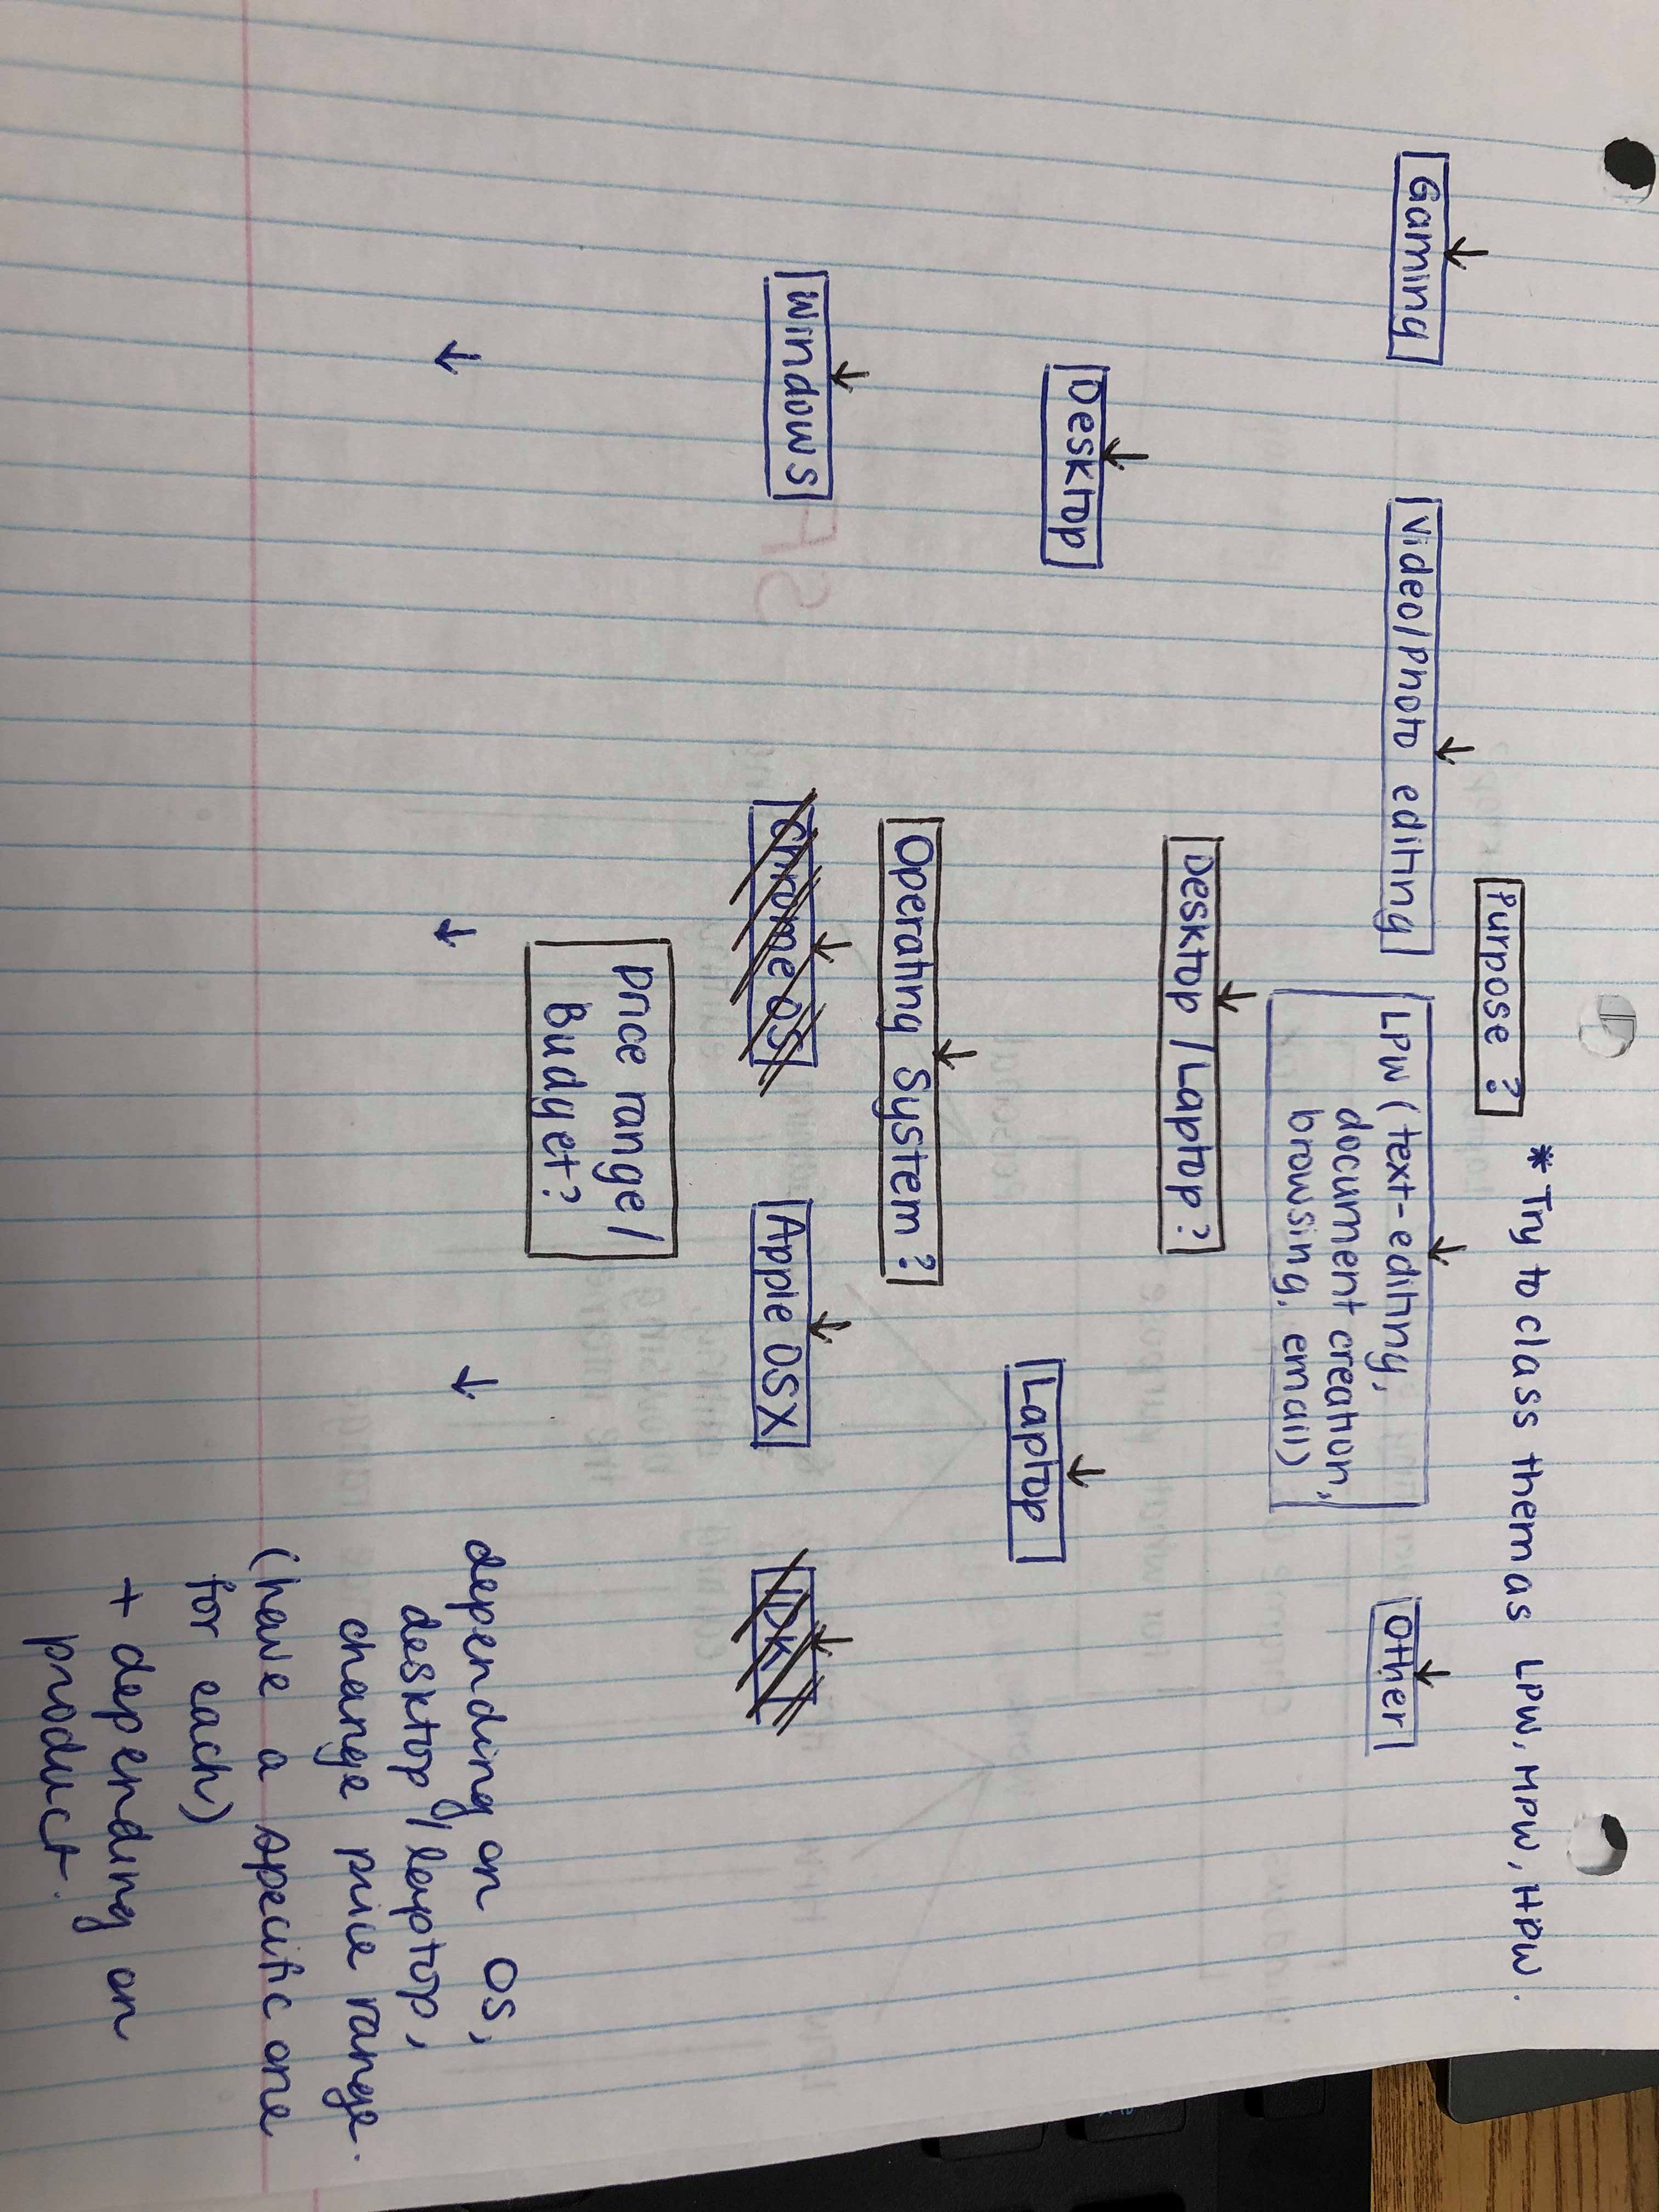 * Try to class them as LPW, MPW, HPW.
Purpose ?
Gaming
Video/Photo editing
LPW (text-editing,
document creation,
browsing, email)
Other
Desktop / Laptop ?
Desktop
Laptop
Operating System ?
Windows
Chrome OS
Apple OSX
IDK
Price range /
Budget?
depending on OS,
desktop / laptop,
change price range.
(have a specific one
for each)
+ depending on
product.